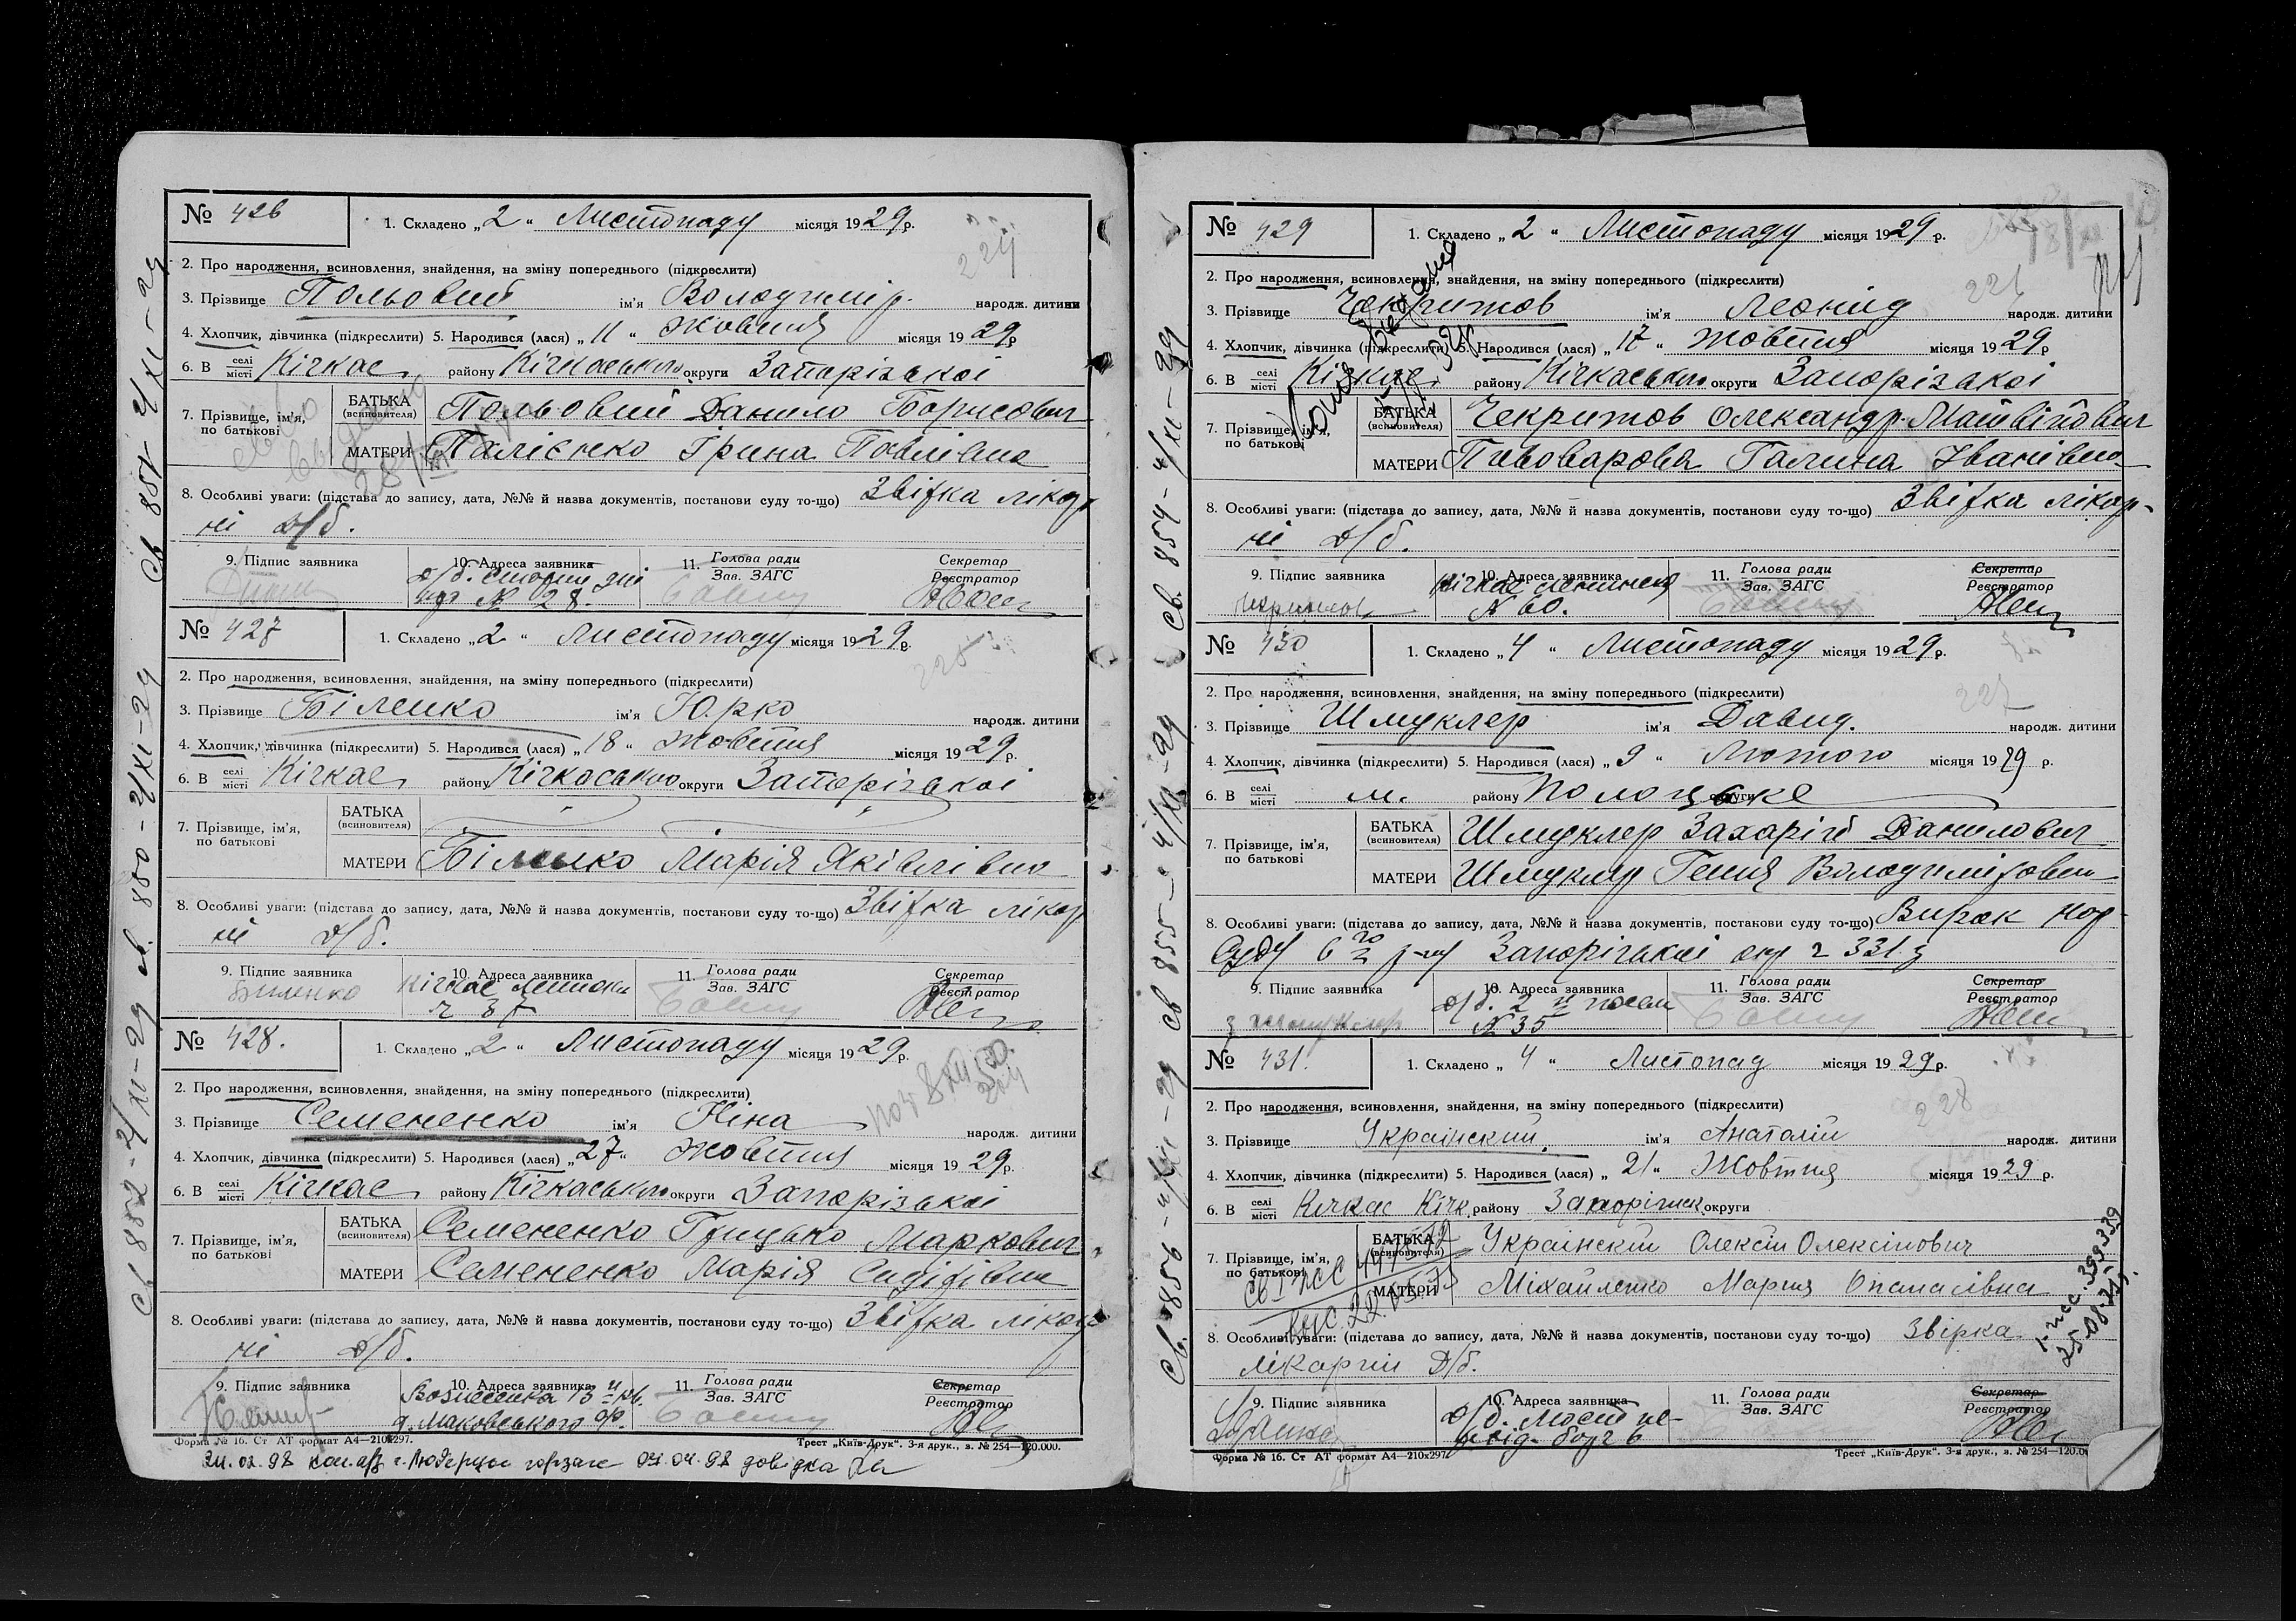 № 426
1. Складено „2“ Листопаду місяця 1929 р.
2. Про народження, всиновлення, знайдення, на зміну попереднього (підкреслити)
3. Прізвище Польовий ім'я Володимір. народж. дитини
4. Хлопчик, дівчинка (підкреслити) 5. Народився (лася) „11“ Жовтня місяця 1929 р
6. В селі місті Кічкас району Кічкаського округи Запорізької
7. Прізвище, ім'я, по батькові
БАТЬКА (всиновителя) Польовий Данило Борисович
МАТЕРИ Палієнко Ірина Павлівна
8. Особливі уваги: (підстава до запису, дата, №№ й назва документів, постанови суду то-що) Звірка лікар
ні Д/б.
9. Підпис заявника 10. Адреса заявника 11. Голова ради Зав. ЗАГС Секретар Реєстратор
Д/б.
№ 28.
№ 427
1. Складено „2“ Листопаду місяця 1929 р.
2. Про народження, всиновлення, знайдення, на зміну попереднього (підкреслити)
3. Прізвище Біленко ім'я Юрко народж. дитини
4. Хлопчик, дівчинка (підкреслити) 5. Народився (лася) „18“ Жовтня місяця 1929 р.
6. В селі місті Кічкас району Кічкаського округи Запорізької
7. Прізвище, ім'я, по батькові
БАТЬКА (всиновителя)
МАТЕРИ Біленко Марія Яківлівна
8. Особливі уваги: (підстава до запису, дата, №№ й назва документів, постанови суду то-що) Звірка лікар
ні Д/б.
9. Підпис заявника 10. Адреса заявника 11. Голова ради Зав. ЗАГС Секретар Реєстратор
Біленко Кічкас
№ 428.
1. Складено „2“ Листопаду місяця 1929 р.
2. Про народження, всиновлення, знайдення, на зміну попереднього (підкреслити)
3. Прізвище Семененко ім'я Ніна народж. дитини
4. Хлопчик, дівчинка (підкреслити) 5. Народився (лася) „27“ Жовтня місяця 1929 р.
6. В селі місті Кічкас району Кічкаського округи Запорізької
7. Прізвище, ім'я, по батькові
БАТЬКА (всиновителя) Семененко Грицько Маркович
МАТЕРИ Семененко Марія
8. Особливі уваги: (підстава до запису, дата, №№ й назва документів, постанови суду то-що) Звірка лікар
ні Д/б.
9. Підпис заявника 10. Адреса заявника 11. Голова ради Зав. ЗАГС Секретар Реєстратор
Вознесенка
Маковського
Форма № 16. Ст АТ формат А4—210х297. Трест „Київ-Друк“. 3-я друк., з. № 254—120.000.
07.04.98 довідка
№ 429
1. Складено „2“ Листопаду місяця 1929 р.
2. Про народження, всиновлення, знайдення, на зміну попереднього (підкреслити)
3. Прізвище Чекритов ім'я Леонід народж. дитини
4. Хлопчик, дівчинка (підкреслити) 5. Народився (лася) „17“ Жовтня місяця 1929 р
6. В селі місті Кічкас району Кічкаського округи Запорізької
7. Прізвище, ім'я, по батькові
БАТЬКА (всиновителя) Чекритов Олександр Матвійович
МАТЕРИ Пивоварова Галина Іванівна
8. Особливі уваги: (підстава до запису, дата, №№ й назва документів, постанови суду то-що) Звірка лікар-
ні Д/б.
9. Підпис заявника 10. Адреса заявника 11. Голова ради Зав. ЗАГС Секретар Реєстратор
Кічкас
№ 60.
№ 430
1. Складено „4“ Листопаду місяця 1929 р.
2. Про народження, всиновлення, знайдення, на зміну попереднього (підкреслити)
3. Прізвище Шмуклер ім'я Давид. народж. дитини
4. Хлопчик, дівчинка (підкреслити) 5. Народився (лася) „9“ Лютого місяця 1929 р.
6. В селі місті м. району Пологське округи
7. Прізвище, ім'я, по батькові
БАТЬКА (всиновителя) Шмуклер Захарій Данилович
МАТЕРИ Шмуклер Геня Володиміровна
8. Особливі уваги: (підстава до запису, дата, №№ й назва документів, постанови суду то-що) Вирок нар
Суду 6го р-ну Запорізької окр
9. Підпис заявника 10. Адреса заявника 11. Голова ради Зав. ЗАГС Секретар Реєстратор
З Шмуклер Д/б. 2
№ 35
№ 431.
1. Складено „4“ Листопад місяця 1929 р.
2. Про народження, всиновлення, знайдення, на зміну попереднього (підкреслити)
3. Прізвище Украінский ім'я Анатолій народж. дитини
4. Хлопчик, дівчинка (підкреслити) 5. Народився (лася) „21“ Жовтня місяця 1929 р.
6. В селі місті Кічкас Кічк. району Запоріжск округи
7. Прізвище, ім'я, по батькові
БАТЬКА (всиновителя) Украінский Олексій Олексійович
МАТЕРИ Міхайленко Мария Опанасівна
8. Особливі уваги: (підстава до запису, дата, №№ й назва документів, постанови суду то-що) Звірка
лікарні Д/б.
9. Підпис заявника 10. Адреса заявника 11. Голова ради Зав. ЗАГС Секретар Реєстратор
Д/б.
Форма № 16. Ст АТ формат А4—210х297. Трест „Київ-Друк“. 3-я друк., з. № 254—120.0